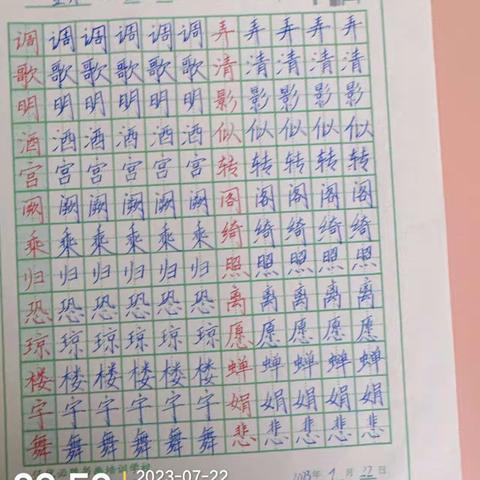 调调调调调调弄弄弄弄弄
歌歌歌歌歌歌清清清清清
明明明明明明影影影影影
酒酒酒酒酒酒似似似似似
宫宫宫宫宫宫转转转转转
阙阙阙阙阙阙阁阁阁阁阁
乘乘乘乘乘乘绮绮绮绮绮
归归归归归归照照照照照
恐恐恐恐恐恐离离离离离
琼琼琼琼琼琼愿愿愿愿愿
楼楼楼楼楼楼蝉蝉蝉蝉蝉
宇宇宇宇宇宇娟娟娟娟娟
舞舞舞舞舞舞悲悲悲悲悲
培训学校
年 月 22 日
2023-07-22